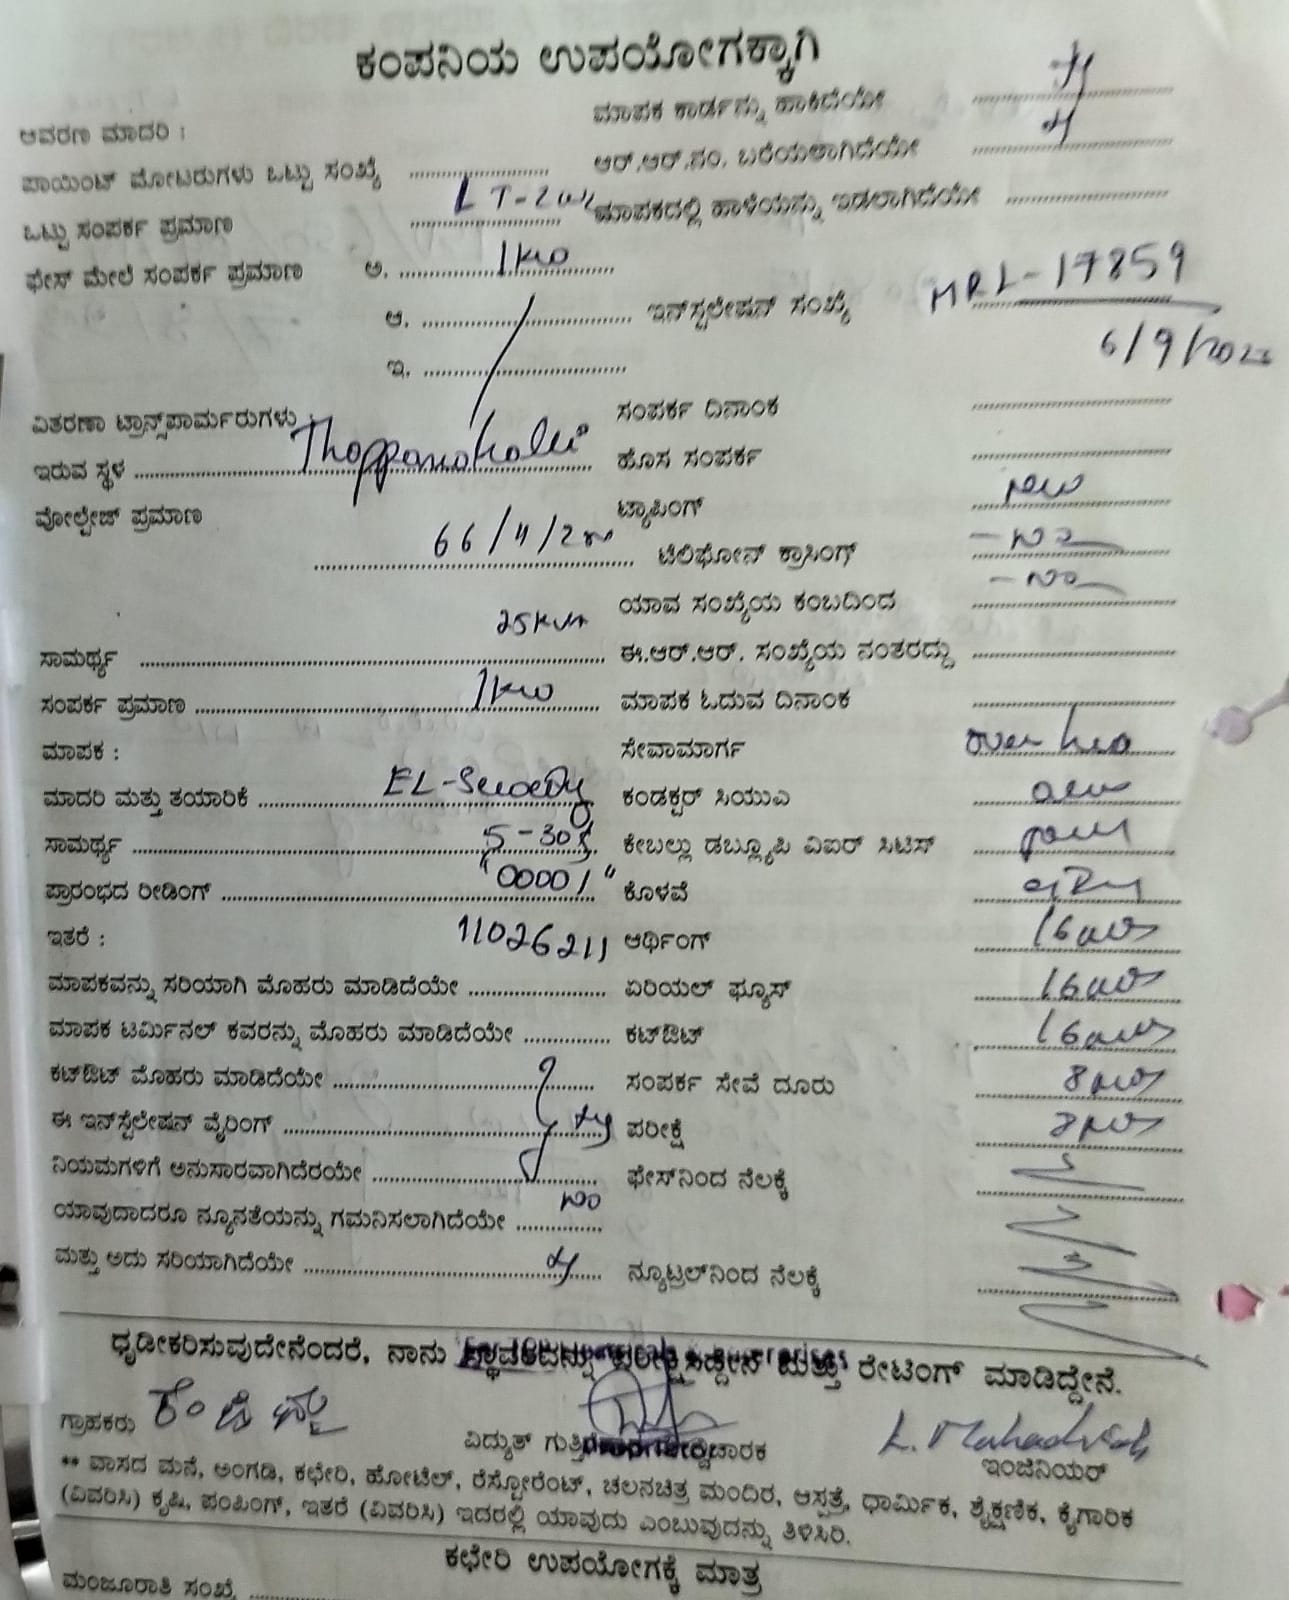 ಕಂಪನಿಯ ಉಪಯೋಗಕ್ಕಾಗಿ
ಆವರಣ ಮಾದರಿ :
ಮಾಪಕ ಕಾರ್ಡನ್ನು ಹಾಕಿದೆಯೇ
ಪಾಯಿಂಟ್ ಮೋಟರುಗಳು ಒಟ್ಟು ಸಂಖ್ಯೆ
ಆರ್.ಆರ್.ನಂ. ಬರೆಯಲಾಗಿದೆಯೇ
ಒಟ್ಟು ಸಂಪರ್ಕ ಪ್ರಮಾಣ LT-2
ಮಾಪಕದಲ್ಲಿ ಹಾಳೆಯನ್ನು ಇಡಲಾಗಿದೆಯೇ
ಫೇಸ್ ಮೇಲೆ ಸಂಪರ್ಕ ಪ್ರಮಾಣ ಅ. 1kw
ಆ.
ಇನ್‌ಸ್ಟಲೇಷನ್ ಸಂಖ್ಯೆ MRL-17859
6/9/202
ಇ.
ವಿತರಣಾ ಟ್ರಾನ್ಸ್‌ಪಾರ್ಮರುಗಳು
ಸಂಪರ್ಕ ದಿನಾಂಕ
ಇರುವ ಸ್ಥಳ
ಹೊಸ ಸಂಪರ್ಕ
ವೋಲ್ಟೇಜ್ ಪ್ರಮಾಣ 66/11/2
ಟ್ಯಾಪಿಂಗ್ new
ಟೆಲಿಫೋನ್ ಕ್ರಾಸಿಂಗ್ - no
ಯಾವ ಸಂಖ್ಯೆಯ ಕಂಬದಿಂದ - no
ಸಾಮರ್ಥ್ಯ 25kva
ಈ.ಆರ್.ಆರ್. ಸಂಖ್ಯೆಯ ನಂತರದ್ದು
ಸಂಪರ್ಕ ಪ್ರಮಾಣ 1kw
ಮಾಪಕ ಓದುವ ದಿನಾಂಕ
ಮಾಪಕ :
ಸೇವಾಮಾರ್ಗ over
ಮಾದರಿ ಮತ್ತು ತಯಾರಿಕೆ EL-Sewedy
ಕಂಡಕ್ಟರ್ ಸಿಯುಎ
ಸಾಮರ್ಥ್ಯ 5-30
ಕೇಬಲ್ಲು ಡಬ್ಲ್ಯೂಪಿ ವಿಐರ್ ಸಿಟಿಸ್
ಪ್ರಾರಂಭದ ರೀಡಿಂಗ್ "00001"
ಕೊಳವೆ
ಇತರೆ : 11026211
ಆರ್ಥಿಂಗ್ 16
ಮಾಪಕವನ್ನು ಸರಿಯಾಗಿ ಮೊಹರು ಮಾಡಿದೆಯೇ
ಏರಿಯಲ್ ಫ್ಯೂಸ್ 16
ಮಾಪಕ ಟರ್ಮಿನಲ್ ಕವರನ್ನು ಮೊಹರು ಮಾಡಿದೆಯೇ
ಕಟ್‌ಔಟ್ 16
ಕಟ್‌ಔಟ್ ಮೊಹರು ಮಾಡಿದೆಯೇ
ಸಂಪರ್ಕ ಸೇವೆ ದೂರು 8
ಈ ಇನ್‌ಸ್ಟಲೇಷನ್ ವೈರಿಂಗ್
ಪರೀಕ್ಷೆ
ನಿಯಮಗಳಿಗೆ ಅನುಸಾರವಾಗಿದೆರಯೇ
ಫೇಸ್‌ನಿಂದ ನೆಲಕ್ಕೆ
ಯಾವುದಾದರೂ ನ್ಯೂನತೆಯನ್ನು ಗಮನಿಸಲಾಗಿದೆಯೇ no
ಮತ್ತು ಅದು ಸರಿಯಾಗಿದೆಯೇ
ನ್ಯೂಟ್ರಲ್‌ನಿಂದ ನೆಲಕ್ಕೆ
ಧೃಡೀಕರಿಸುವುದೇನೆಂದರೆ, ನಾನು ಸ್ಥಾವರವನ್ನು ಪರೀಕ್ಷಿಸಿದ್ದೇನೆ ಮತ್ತು ರೇಟಿಂಗ್ ಮಾಡಿದ್ದೇನೆ.
ಗ್ರಾಹಕರು
ವಿದ್ಯುತ್
L. Mahadev
ಇಂಜಿನಿಯರ್
** ವಾಸದ ಮನೆ, ಅಂಗಡಿ, ಕಛೇರಿ, ಹೋಟೆಲ್, ರೆಸ್ಟೋರೆಂಟ್, ಚಲನಚಿತ್ರ ಮಂದಿರ, ಆಸ್ಪತ್ರೆ, ಧಾರ್ಮಿಕ, ಶೈಕ್ಷಣಿಕ, ಕೈಗಾರಿಕ
(ವಿವರಿಸಿ) ಕೃಷಿ, ಪಂಪಿಂಗ್, ಇತರೆ (ವಿವರಿಸಿ) ಇದರಲ್ಲಿ ಯಾವುದು ಎಂಬುವುದನ್ನು ತಿಳಿಸಿರಿ.
ಕಛೇರಿ ಉಪಯೋಗಕ್ಕೆ ಮಾತ್ರ
ಮಂಜೂರಾತಿ ಸಂಖ್ಯೆ